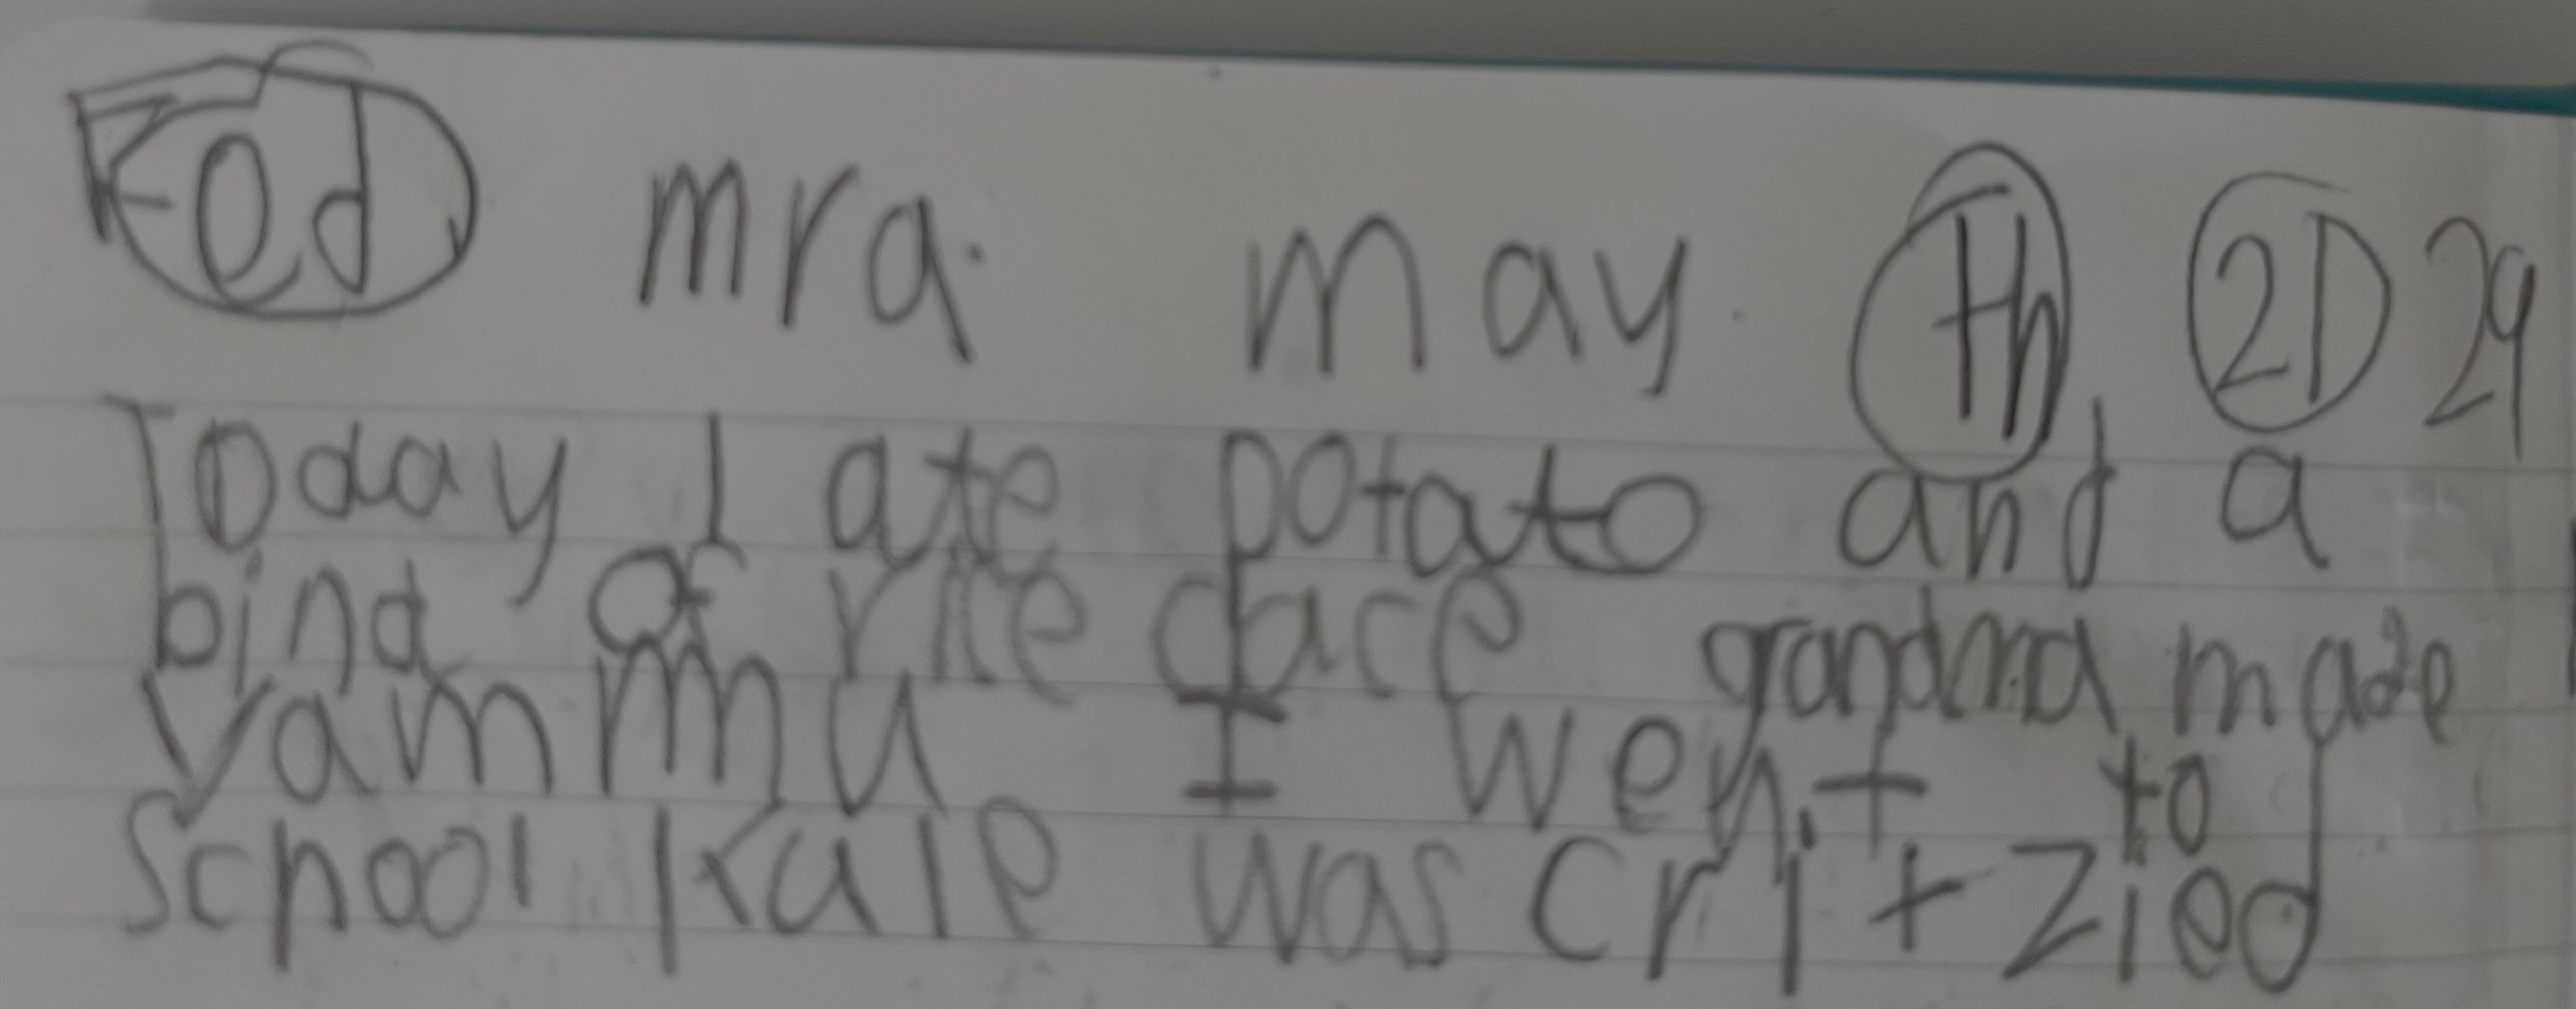 mra. may. th 21 29
Today I ate potato and a
bind of rice cace grandma made
Yammu I went to
School Kule was critzied